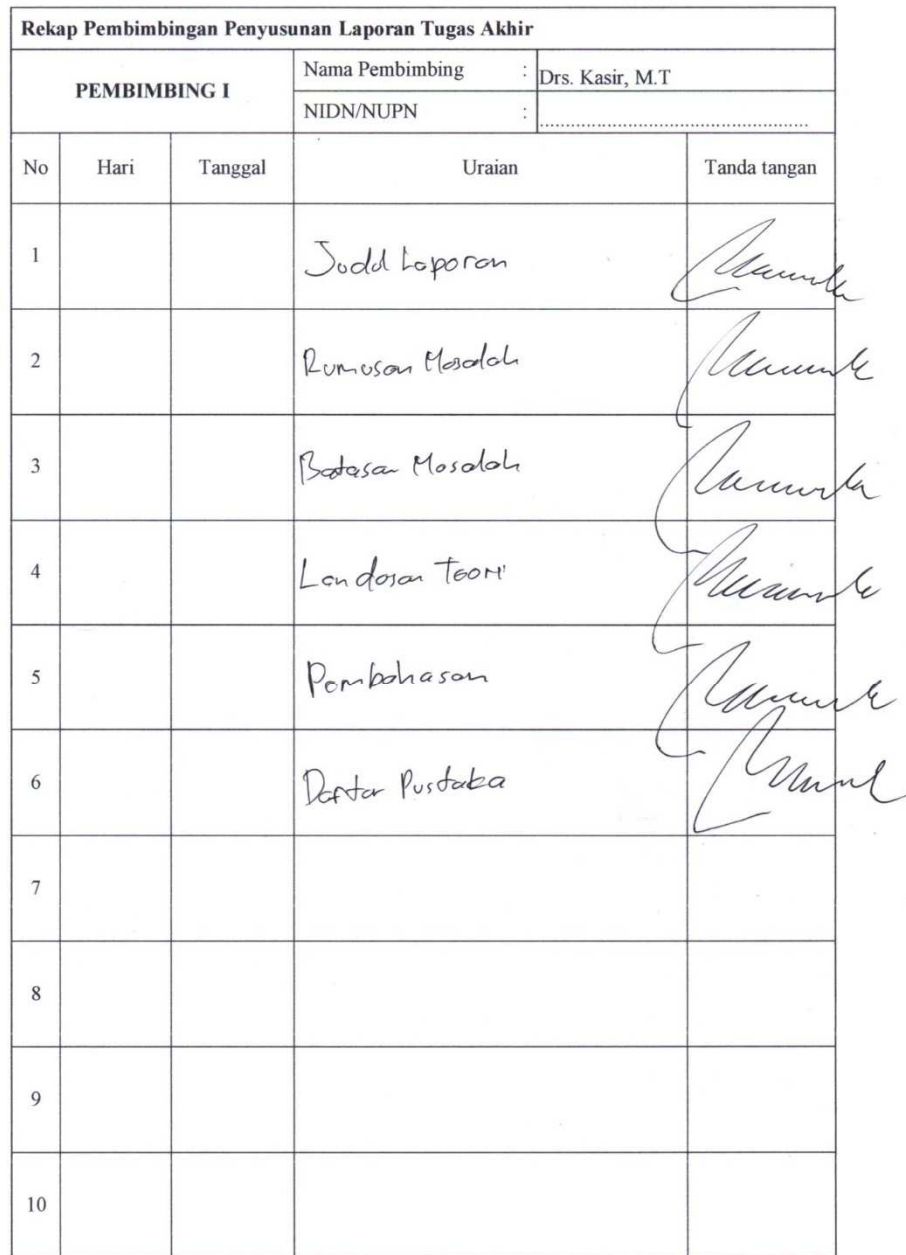 Rekap Pembimbingan Penyusunan Laporan Tugas Akhir
PEMBIMBING I
Nama Pembimbing : Drs. Kasir, M.T
NIDN/NUPN : ................................................
No Hari Tanggal Uraian Tanda tangan
1 Judul Laporan
2 Rumusan Masalah
3 Batasan Masalah
4 Landasan Teori
5 Pembahasan
6 Daftar Pustaka
7
8
9
10